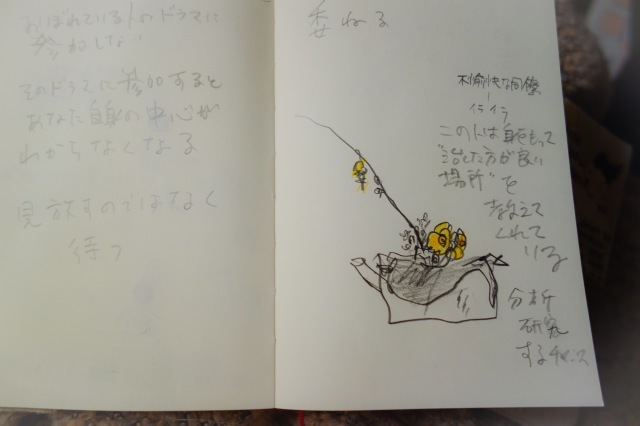 おぼれている人のドラマに
参加しない
そのドラマに参加すると
あなた自身の中心が
わからなくなる
見放すのではなく
待つ
委ねる
不愉快な同僚
イライラ
この人は身をもって
"治した方が良い
場所"を
教えて
くれて
いる
分析
研究
するチャンス